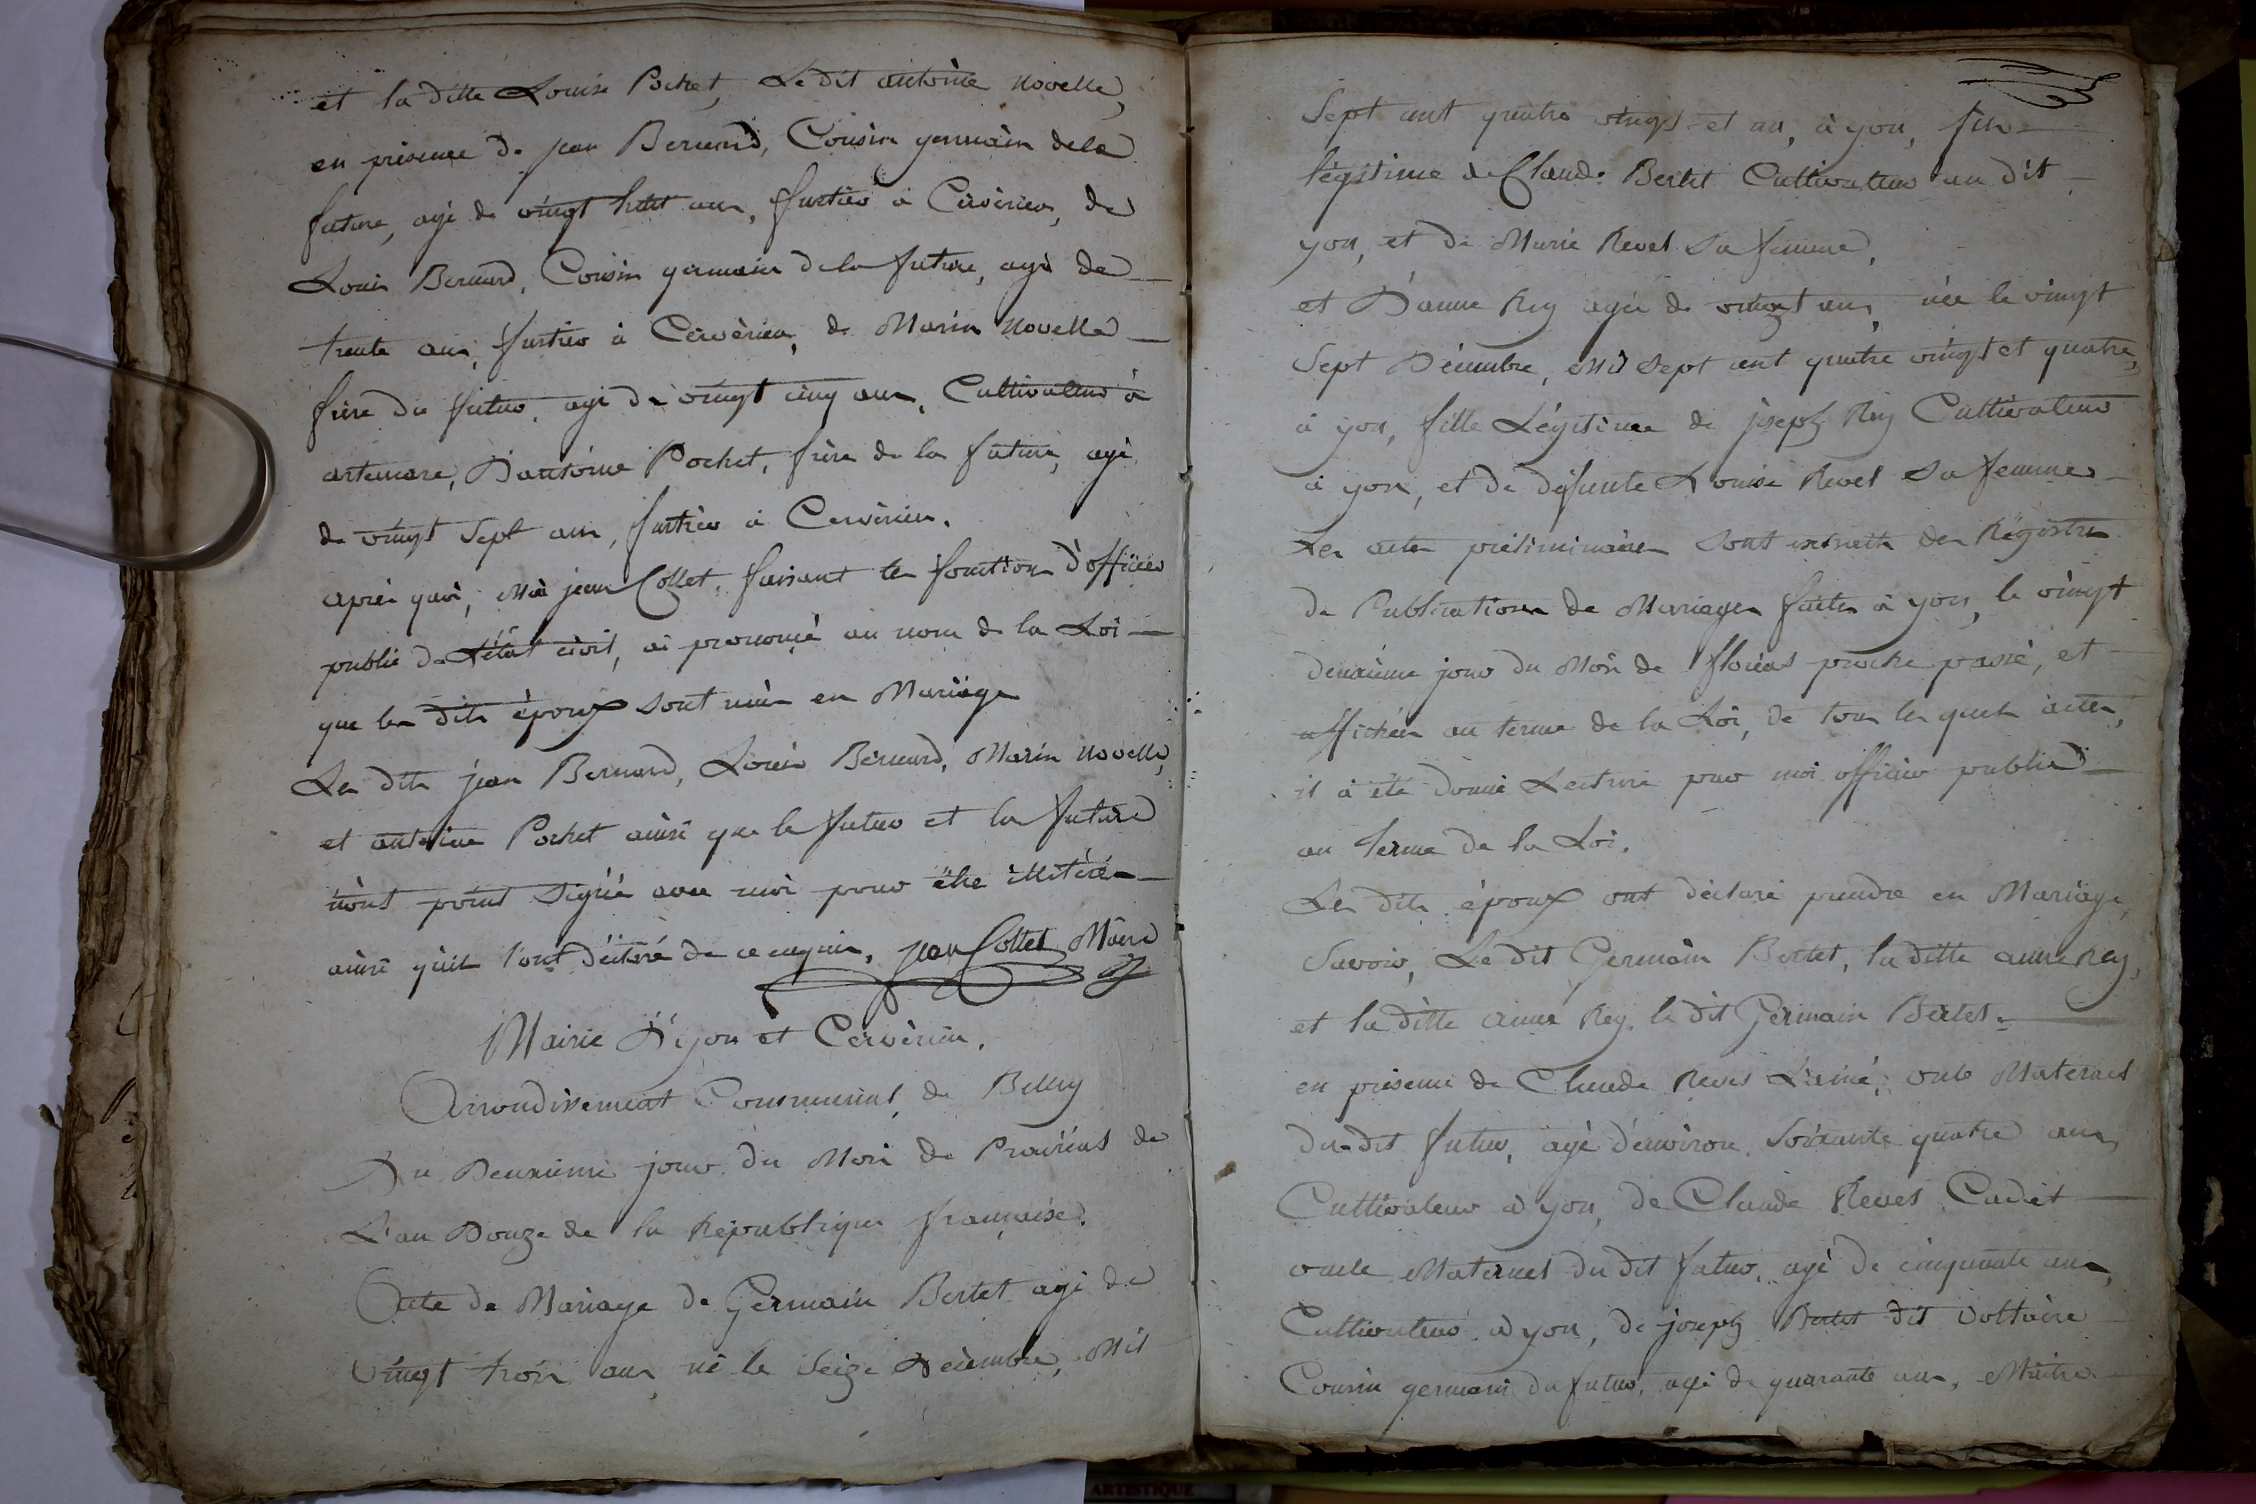 et la ditte Louise Pochet, Le dit antoine Novelle,
en présence de jean Bernard, Cousin germain dela
future, agé de vingt huit ans, fustier à Cerverieu, de
Louis Bernard, Cousin germain dela future, agé de
trente ans, fustier à Cerverieu, de Marin Novelle
frère du futur, agé de vingt cinq ans, Cultivateur à
artemare, D'antoine Pochet, frère de la future, agé
de vingt Sept ans, fustier à Cerverieu.
après quoi, Moi jean Collet, faisant les fonctions d'officier
public de L'état civil, ai prononcé au nom de la Loi
que les dits époux sont unis en Mariage
Les dits jean Bernard, Louis Bernard, Marin Novelle,
et antoine Pochet ainsi que le futur et la future
n'ont point signé avec moi pour être illitérés
ainsi qu'ils l'ont déclaré de ce enquis, jean Collet Maire
Mairie D'yon et Cerverieu.
Arrondissement Communal de Belley
Du Deuxième jour du Mois de Prairéal de
L'an Douze de la République française.
Acte de Mariage de Germain Bertet agé de
vingt trois ans né le Seize Décembre, Mil
Sept cent quatre vingt et un, à yon, fils
légitime de Claude Bertet Cultivateur au dit
yon, et de Marie Revel Sa femme,
et D'anne Rey agée de vingt ans, née le vingt
Sept Décembre, Mil Sept cent quatre vingt et quatre,
à yon, fille Légitime de joseph Rey Cultivateur
à yon, et de défunte Louise Revel Sa femme
Les actes préliminaires sont extraits des Régistres
de Publications de Mariages faites à yon, le vingt
deuxième jour du Mois de floréal proche passé, et
affichées au terme de la Loi, de tous les quels actes,
il à été donné Lecture par moi officier public
au terme de la Loi.
Les dits époux ont déclaré prendre en Mariage,
Savoir, Le dit Germain Bertet, la ditte anne Rey,
et la ditte anne Rey, le dit Germain Bertet.
en présence de Claude Revel L'ainé, oncle Maternel
du dit futur, agé d'environ Soixante quatre ans,
Cultivateur à yon, de Claude Revel Cadet
oncle Maternel du dit futur, agé de cinquante ans,
Cultivateur à yon, de joseph Bertet dit Voltaire
Cousin germain du futur, agé de quarante ans, Maître